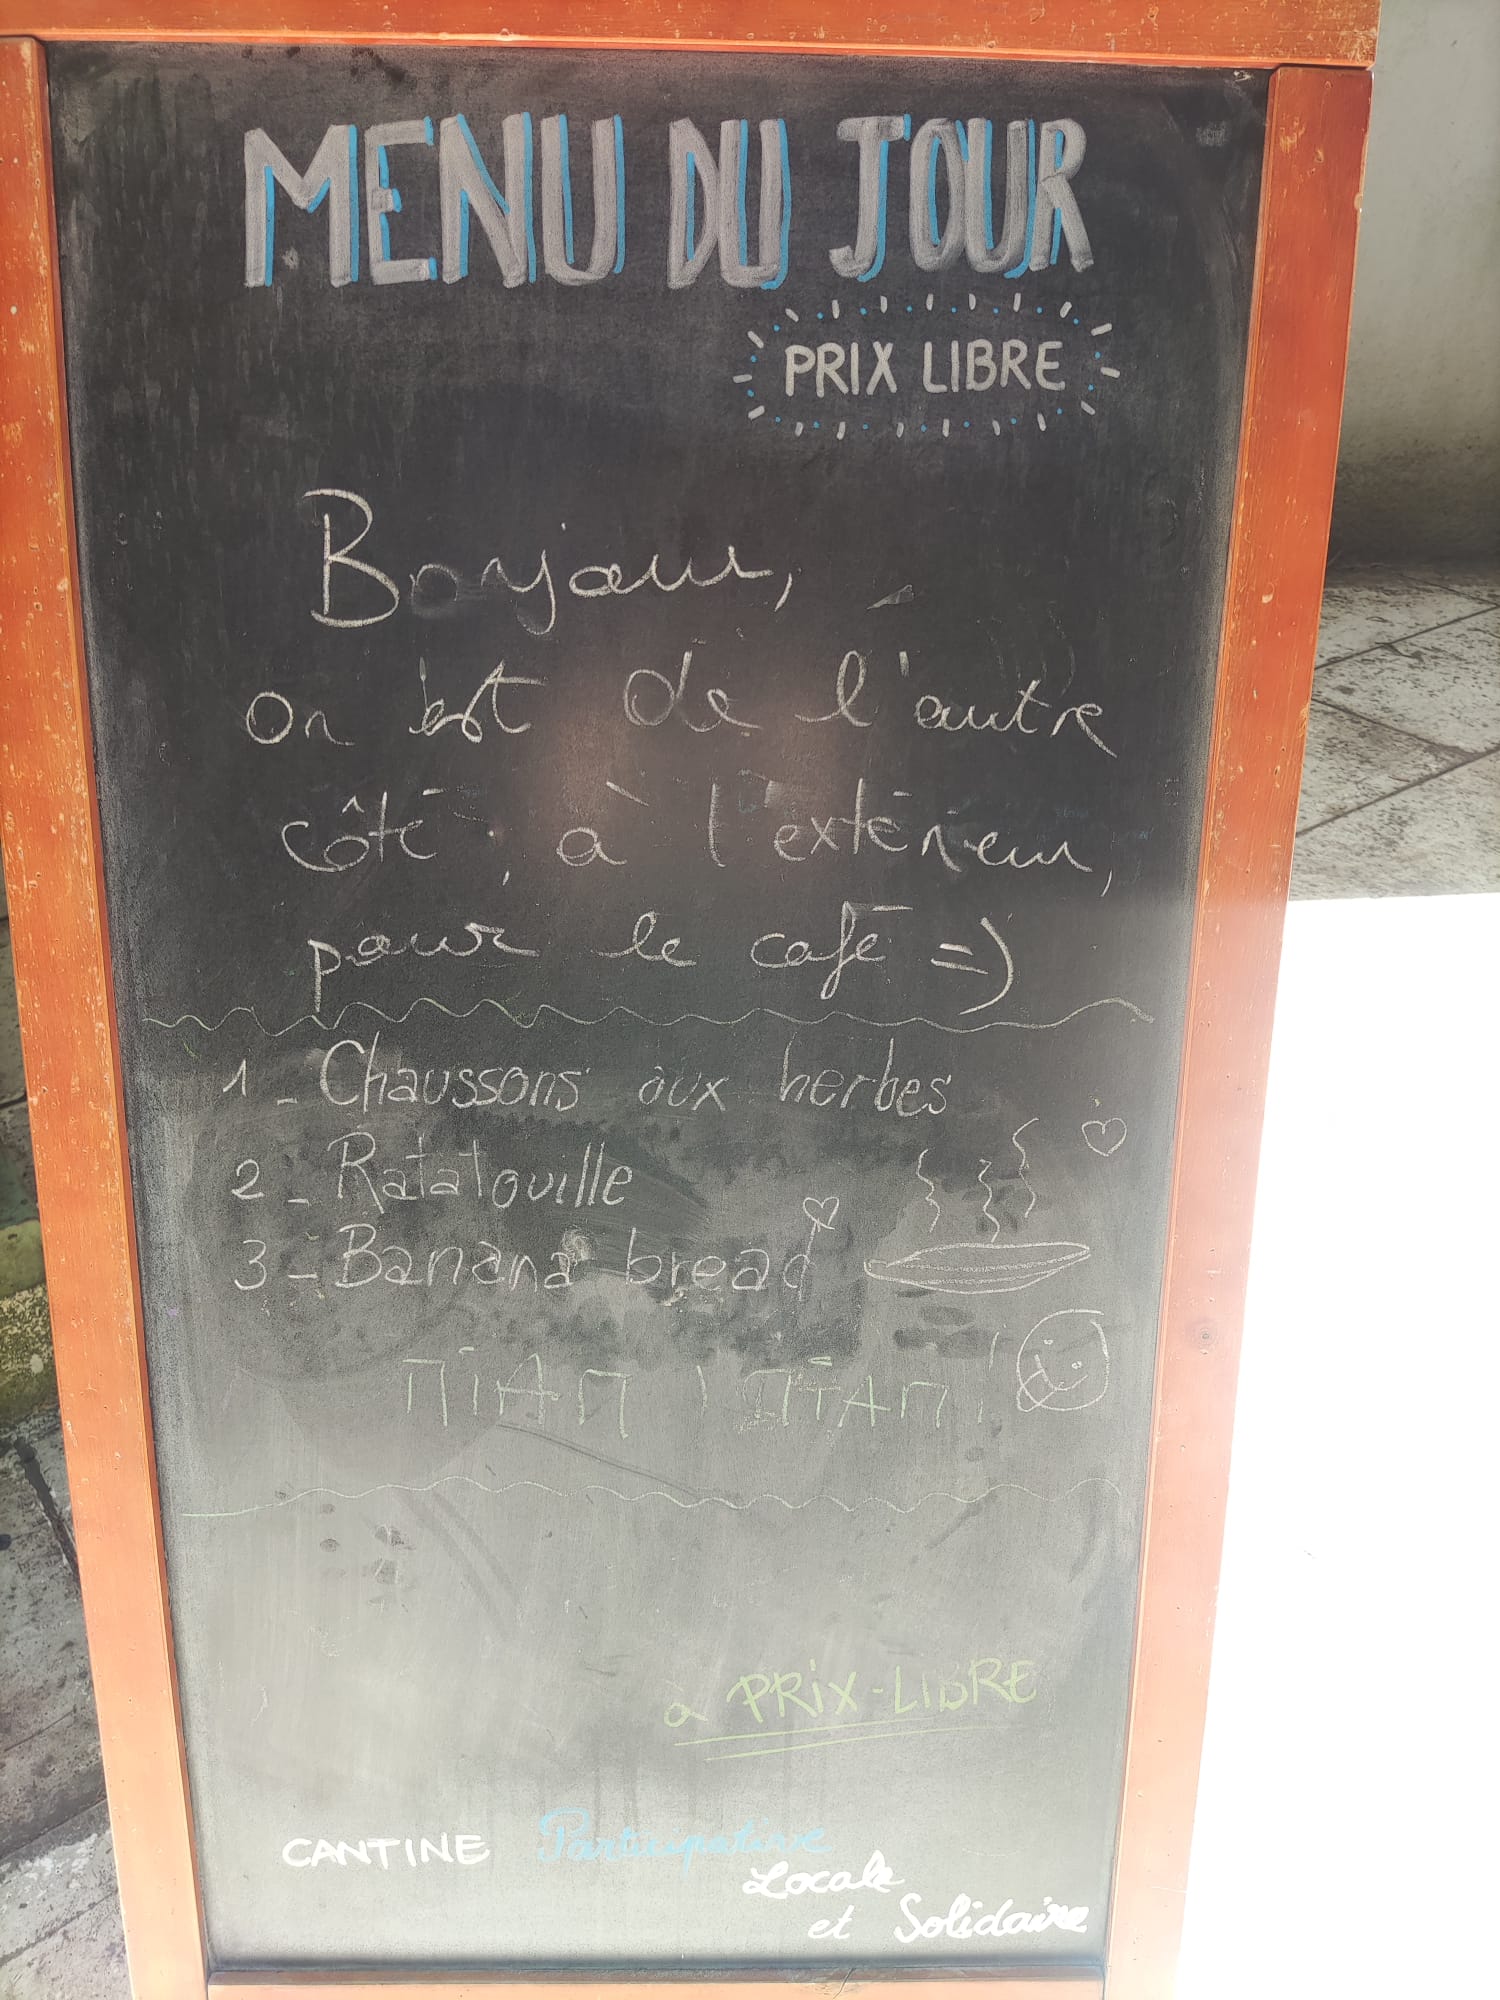 MENU DU JOUR
PRIX LIBRE
Bonjour,
on est de l'autre
côté, à l'extérieur,
pour le café =)
1 - Chaussons aux herbes
2 - Ratatouille
3 - Banana bread
MiAM ! MiAM !
à PRiX-LIBRE
CANTINE Participative
Locale
et Solidaire